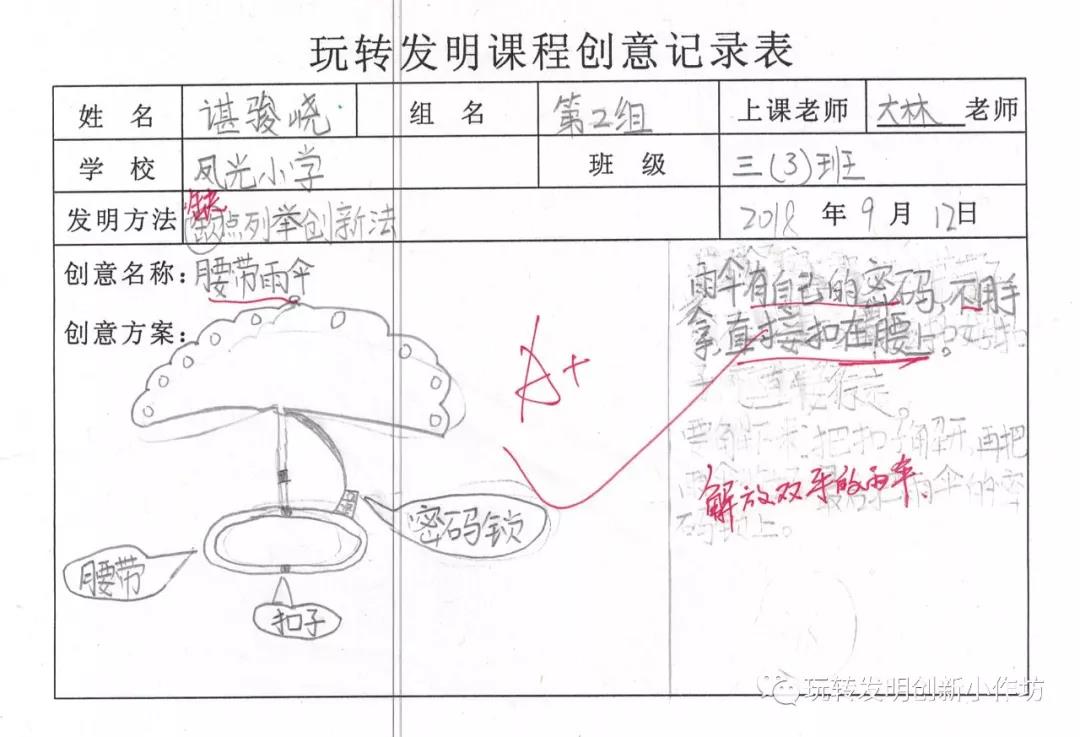 玩转发明课程创意记录表
姓 名 谌骏峣 组 名 第2组 上课老师 大林 老师
学 校 凤光小学 班 级 三(3)班
缺
发明方法 点列举创新法 2018 年 9 月 12日
创意名称:腰带雨伞
创意方案:
雨伞有自己的密码,不用手
拿,直接扣在腰上。
A+
行走。
把扣子解开,再把
解放双手的雨伞.
伞的密
码锁上。
密码锁
腰带
扣子
玩转发明创新小作坊